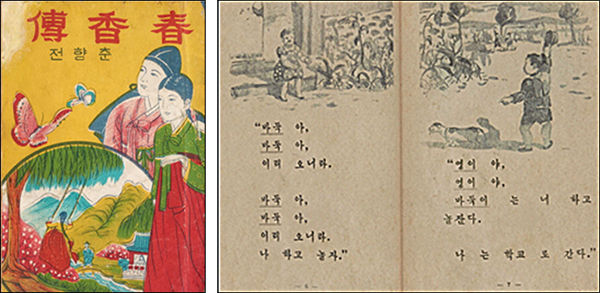 春香傳
춘향전
“바둑 아,
바둑 아,
이리 오너라.
바둑 아,
바둑 아,
이리 오너라.
나 하고 놀자.”
— 6 —
“영이 야,
영이 야,
바둑이 는 너 하고
놀잔다.
나 는 학교 로 간다.”
— 7 —